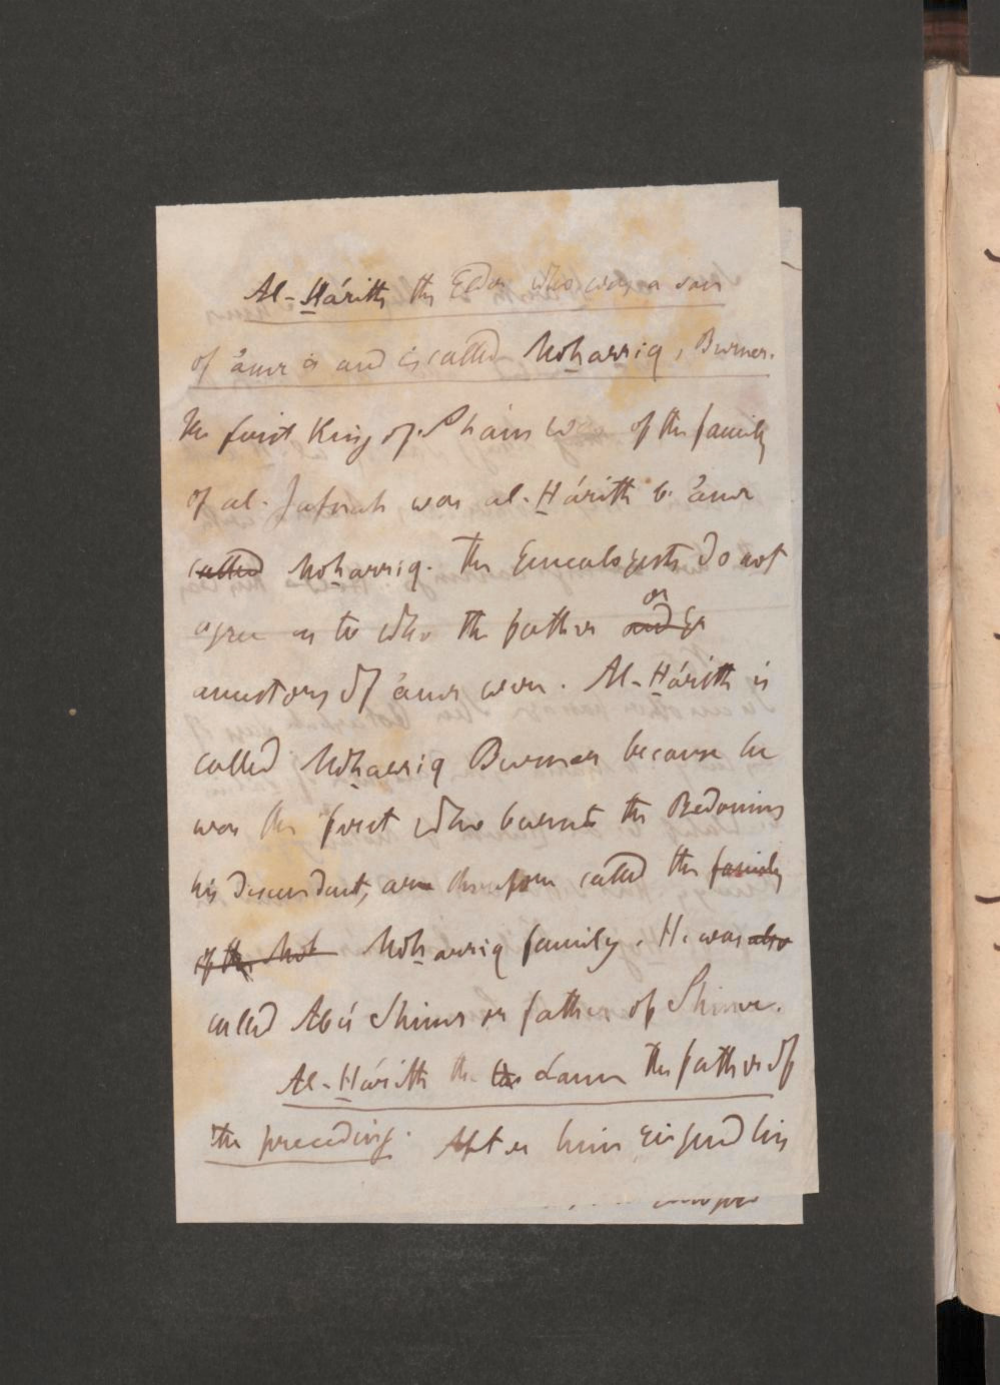 Al-Hárith the Elder who was a son
of 'amr is and is called Moharriq, Burner.
The first King of Sham was of the family
of al-Jafnah was al-Hárith b. 'amr
called Moharriq. The Genealogists do not
agree as to who the father and or
ancestors of 'amr were. Al-Hárith is
called Moharriq Burner because he
was the first who burnt the Bedouins
his descendants, are therefore called the family
of the Moh Moharriq family. He was also
called Abú Shimr or father of Shimr.
Al-Hárith the Lame the father of
the preceding. After him reigned his